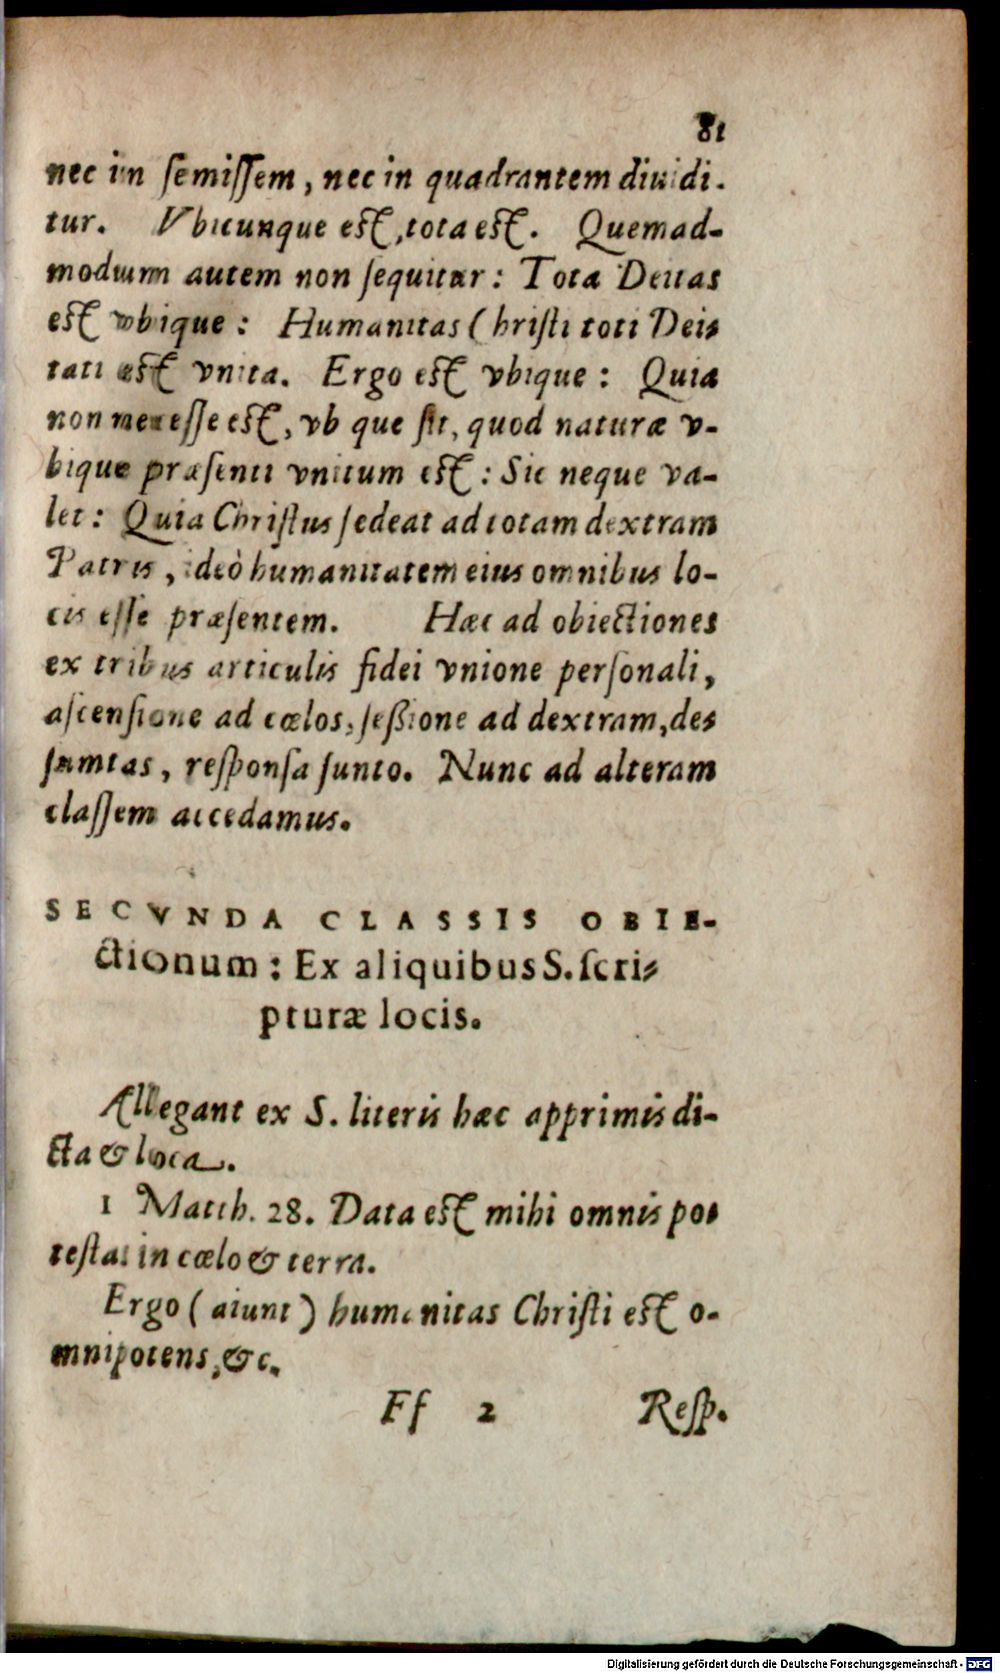 81
nec in ſemiſſem, nec in quadrantem diuidi-
tur. Vbicunque eſt, tota eſt. Quemad-
modum autem non ſequitur: Tota Deitas
eſt vbique: Humanitas Chriſti toti Dei-
tati eſt vnita. Ergo eſt vbique: Quia
non neceſſe eſt, vbique ſit, quod naturæ v-
bique præſenti vnitum eſt: Sic neque va-
let: Quia Chriſtus ſedeat ad totam dextram
Patris, ideò humanitatem eius omnibus lo-
cis eſſe præſentem. Hæc ad obiectiones
ex tribus articulis fidei vnione perſonali,
aſcenſione ad cœlos, ſeßione ad dextram, de-
ſumtas, reſponſa ſunto. Nunc ad alteram
claſſem accedamus.
SECVNDA CLASSIS OBIE-
ctionum: Ex aliquibus S. ſcri-
pturæ locis.
Allegant ex S. literis hæc apprimis di-
cta & loca.
1 Matth. 28. Data eſt mihi omnis po-
teſtas in cœlo & terra.
Ergo (aiunt) humanitas Chriſti eſt o-
mnipotens, &c.
Ff 2 Reſp.
Digitalisierung gefördert durch die Deutsche Forschungsgemeinschaft - DFG